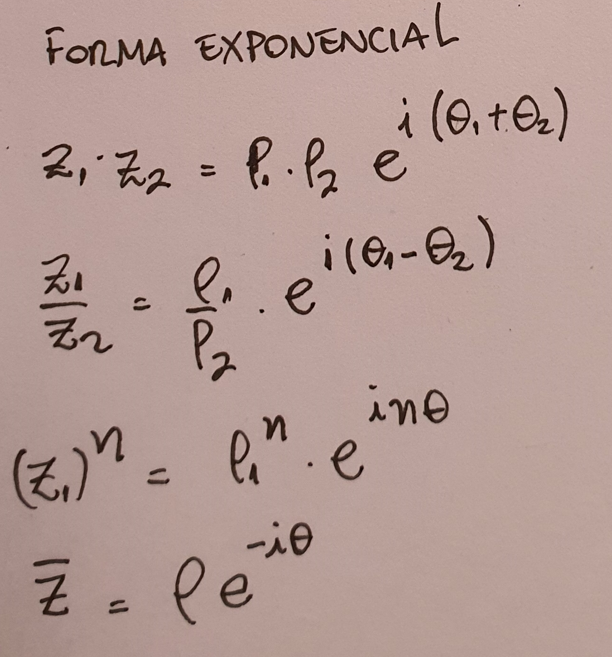 FORMA EXPONENCIAL
z₁·z₂ = ρ₁·ρ₂ e^{i(θ₁+θ₂)}
z₁/z₂ = ρ₁/ρ₂ · e^{i(θ₁-θ₂)}
(z₁)ⁿ = ρ₁ⁿ · e^{inθ}
z̄ = ρe^{-iθ}